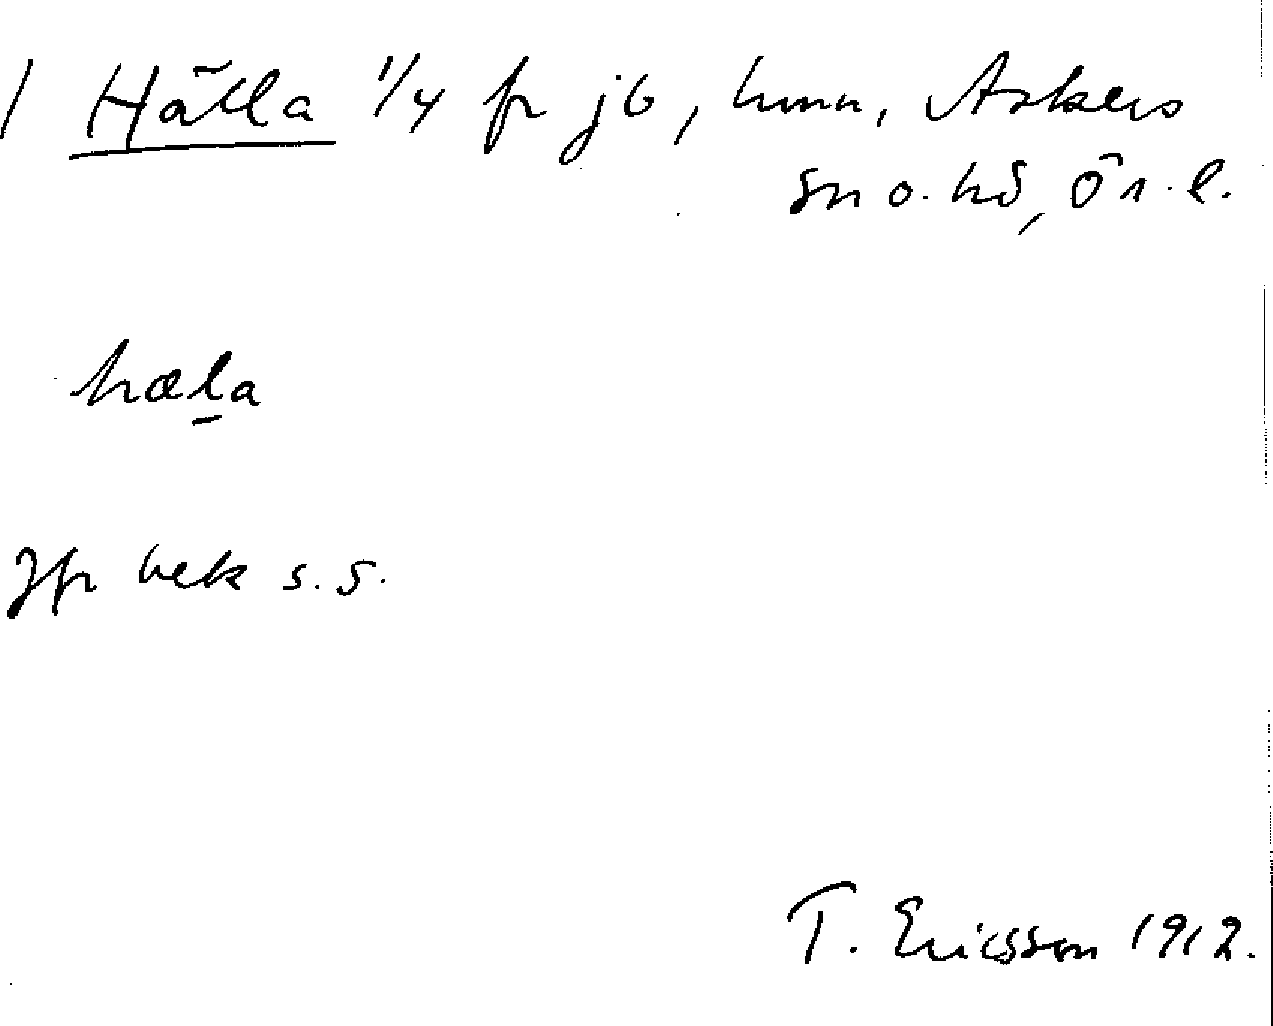 1 Hälla 1/4 fr jb, hmn, Askers
sn o. hd, Ör. l.
hæla
Jfr bek s. s.
T. Ericsson 1912.